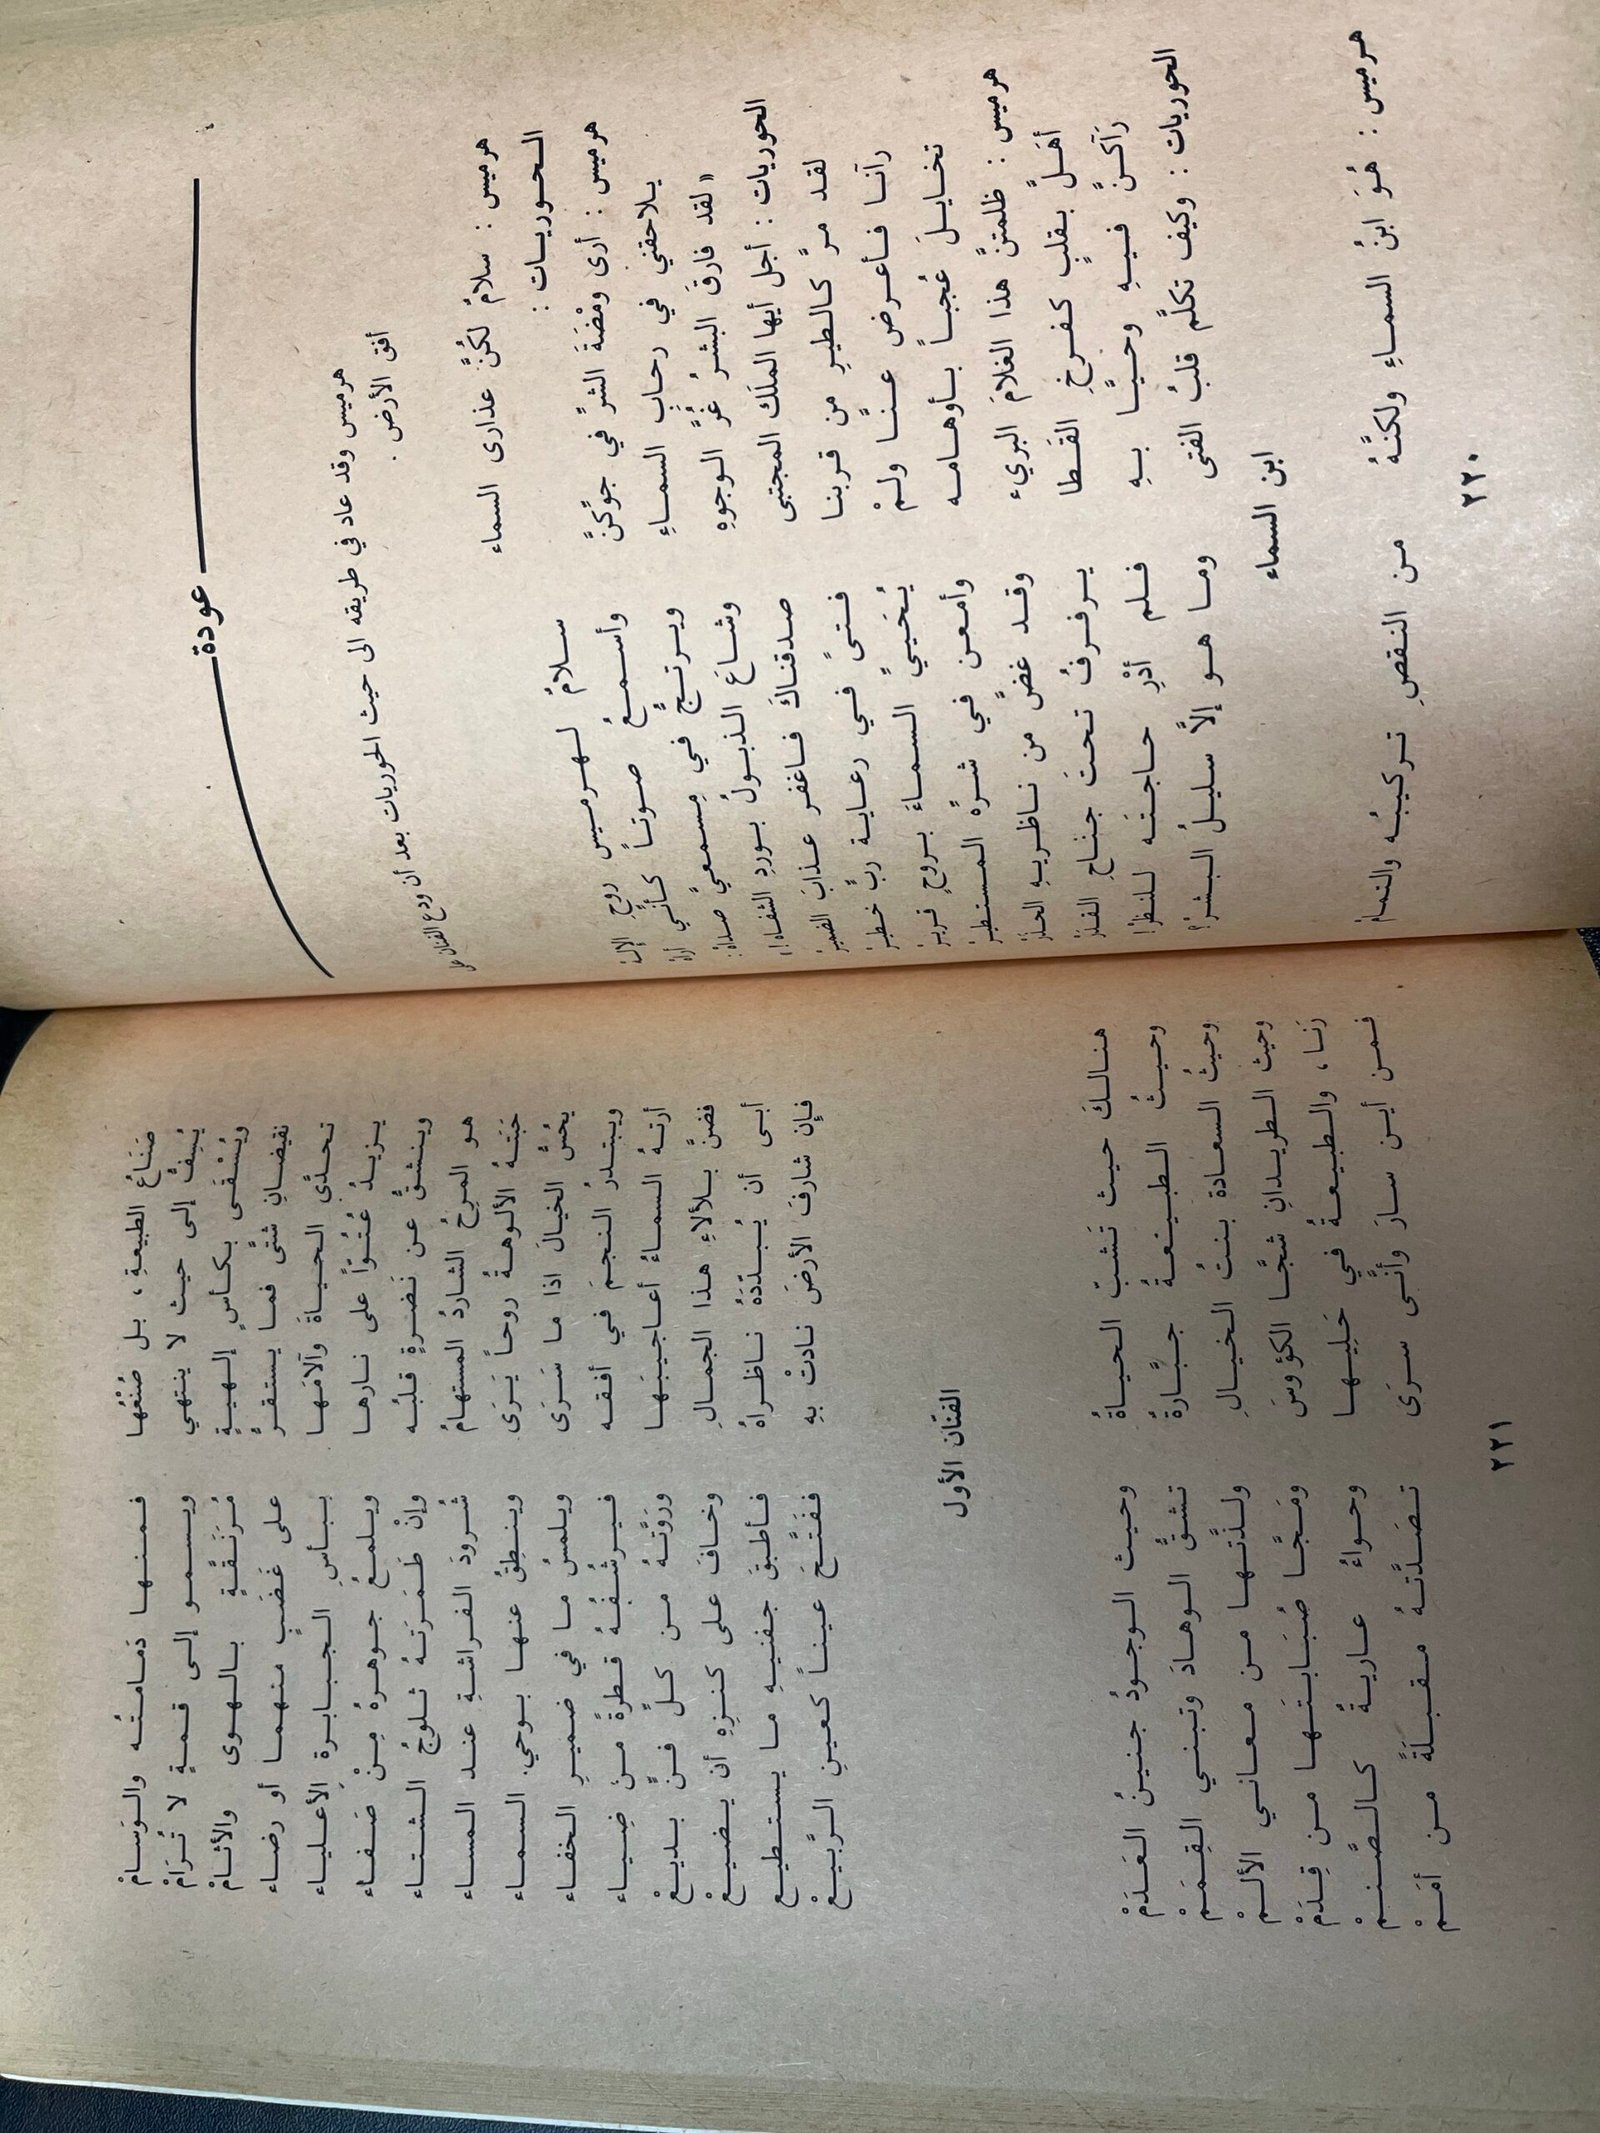 عودة
هرميس وقد عاد في طريقه الى حيث الحوريات بعد أن ودع الفنان على
أفق الأرض .
هرميس : سلامٌ لكُنَّ عذارى السماء
الحوريات : سلامٌ لهرميس روحِ الإلهْ
هرميس : أرى ومْضَةَ الشرِّ في جوِّكنَّ وأسمعُ صوتاً كأنّي أراهْ
يلاحقني في رحابِ السماءِ ويرتجُّ في مِسمعيَّ صداهْ:
«لقد فارقَ البشرُ غُرَّ الوجوهِ وشاعَ الذبولُ بوردِ الشفاه!»
الحوريات : أجل أيها الملَك المجتبى صدقناكَ فاغفر عذابَ الضميرْ
لقد مرَّ كالطيرِ من قربنا فتىً في رعاية ربٍّ خطيرْ
رآنا فأعرض عنَّا ولمْ يُحَييِّ السماءَ بروحٍ قريرْ
تخايلَ عُجباً بأوهامه وأمعن في شرِّه المستطيرْ
هرميس : ظلمتنَّ هذا الغلامَ البريء وقد غضَّ من ناظريهِ الحذرْ
أهَلَّ بقلبٍ كفرخِ القَطا يرفرفُ تحتَ جناحِ القدَرْ
رَآكنَّ فيهِ وحيَّا بهِ فلم أدْرِ حاجتَه للنظرْ!
الحوريات : وكيف تكلَّم قلبُ الفتى وما هو إلَّا سليلُ البشرْ؟
ابن السماء
هرميس : هُوَ ابنُ السماءِ ولكنَّهُ من النقصِ تركيبُه والتمامْ
٢٢٠
صَنَاعُ الطبيعةِ ، بل صُنْعُها فمنها دَمَامتُه والوَسامْ
يُسِفُّ إلى حيث لا ينتهي ويسمو إلى قمةٍ لا تُرَامْ
ويُسْقَى بكأسٍ إلهيةٍ مُرَنَّقَةٍ بالهوى والأثامْ
نقيضانِ شتَّى فما يستقرُّ على غَضَبٍ منهما أو رضاء
تحدَّى الحياةَ وآلامَها ببأسِ الجبابرةِ الأعلياء
يزيدُ عُتُوّاً على نارها ويلمعُ جوهرهُ مِنْ صَفاء
وينشقُّ عن نَضرةٍ قلبُه وإنْ طَمَرَتهُ ثلوجُ الشتاء
هو المرِحُ الشاردُ المستهامُ شُرودَ الفراشةِ عند المساء
حَبَتهُ الألوهةُ روحاً يَرَى وينطِقُ عنها بوحي السماء
يحُسُّ الخيالَ اذا ما سَرَى ويلمسُ ما في ضميرِ الخفاء
ويبتدرُ النجمَ في أفقه فيرشُفُهُ قطرةً منَ ضِياء
أرتهُ السماءُ أعاجيبَها وروَّتهُ من كلِّ فنٍّ بديعْ
فضنَّ بلألاءِ هذا الجمالِ وخافَ على كنزِهِ أن يضيعْ
أبى أن يُبدّدَهُ ناظراهُ فأطبقَ جفنيهِ ما يستطيع
فإن شارفَ الأرضَ نادتْ بهِ ففَتَّحَ عيناً كعينِ الرَّبيعْ
الفنّان الأول
هنالكَ حيث تَشبّ الحياةُ وحيث الوجودُ جنينُ العَدَمْ
وحيثُ الطبيعةُ جبَّارةٌ تشقُّ الوهادَ وتبني القِمَمْ
وحيثُ السعادة بنتُ الخيالِ ولذَّتها من معاني الألمْ
وحيث الطريدانِ شجَّا الكؤوسَ ومَجَّا صُبَابتَها من قِدَمْ
رَنا ، والطبيعةُ في حَليِها وحواءُ عاريةٌ كالصَّنمْ
فمن أين سارَ وأنَّى سرَى تصَدَّتهُ مقبلَةً من أمَمْ
٢٢١